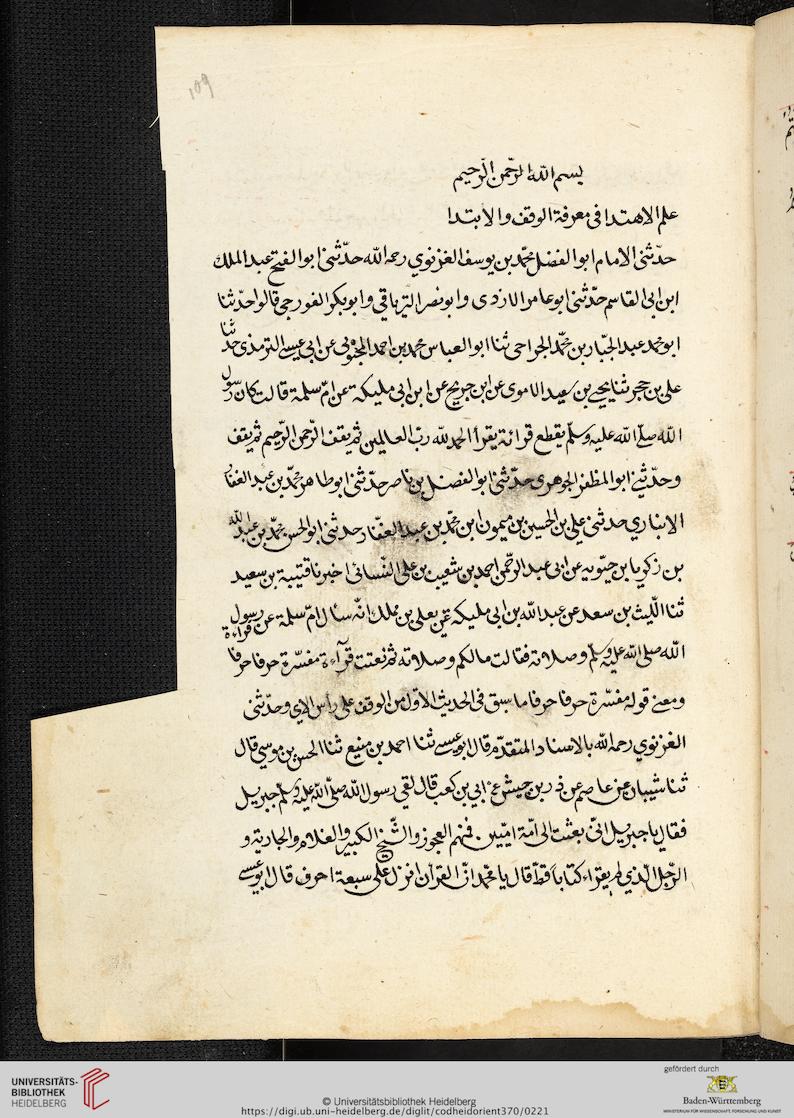 109
بسم الله الرحمن الرحيم
علم الاهتدا في معرفة الوقف والابتدا
حدّثنى الامام ابو الفضل محمّد بن يوسف الغزنوي رحمه الله حدّثنى ابو الفتح عبد الملك
ابن ابى القاسم حدّثنى ابو عامر الازدى وابو نصر الترياقي وابو بكر الغورجى قالوا حدّثنا
ابو محمد عبد الجبّار بن محمّد الجراحى ثنا ابو العباس محمد بن احمد المحبوبى عن ابي عيسى الترمذى حدّثنا
على بن حجر ثنا يحيى بن سعيد الاموى عن ابن جريج عن ابن ابى مليكة عن امّ سلمة قالت كان رسول
الله صلّى الله عليه وسلّم يقطع قرائة يقرأ الحمد لله ربّ العالمين ثم يقف الرّحمن الرّحيم ثم يقف
وحدّثنى ابو المظفر الجوهرى حدّثنى ابو الفضل بن ناصر حدّثنى ابو طاهر محمّد بن عبد الغفار
الانباري حدثنى علي بن الحسين بن ميمون ابن محمّد بن عبد الغفّار حدثنى ابو الحسن محمّد بن عبد الله
بن زكريا بن حيّويه عن ابى عبد الرحّمن احمد بن شعيب بن على النّسائى اخبرنا قتيبة بن سعيد
ثنا اللّيث بن سعد عن عبد الله بن ابى مليكة عن يعلى بن مملك انّه سأل امّ سلمة عن قراءة رسول
الله صلى الله عليه وسلّم وصلاته فقالت مالكم وصلاته ثم نعتت قرآءة مفسّرة حرفا حرفا
ومعنى قوله مفسّرة حرفا حرفا ما سبق فى الحديث الاوّل من الوقف على رأس الاي وحدّثنى
الغزنوي رحمه الله بالاسناد المتقدّم قال ابو عيسى ثنا احمد بن منيع ثنا الحسن بن موسى قال
ثنا شيبان عن عاصم عن ذر بن حبيش عن ابي بن كعب قال لقي رسول الله صلّى الله عليه وسلم جبريل
فقال يا جبريل انّى بعثت الى امّة امّيين فمنهم العجوز والشّيخ الكبير والغلام والجارية و
الرّجل الّذي لم يقراء كتابا قطّ قال يا محّمد انّ القرآن انزل على سبعة احرف قال ابو عيسى
UNIVERSITÄTS-
BIBLIOTHEK
HEIDELBERG
© Universitätsbibliothek Heidelberg
https://digi.ub.uni-heidelberg.de/diglit/codheidorient370/0221
gefördert durch
Baden-Württemberg
MINISTERIUM FÜR WISSENSCHAFT, FORSCHUNG UND KUNST